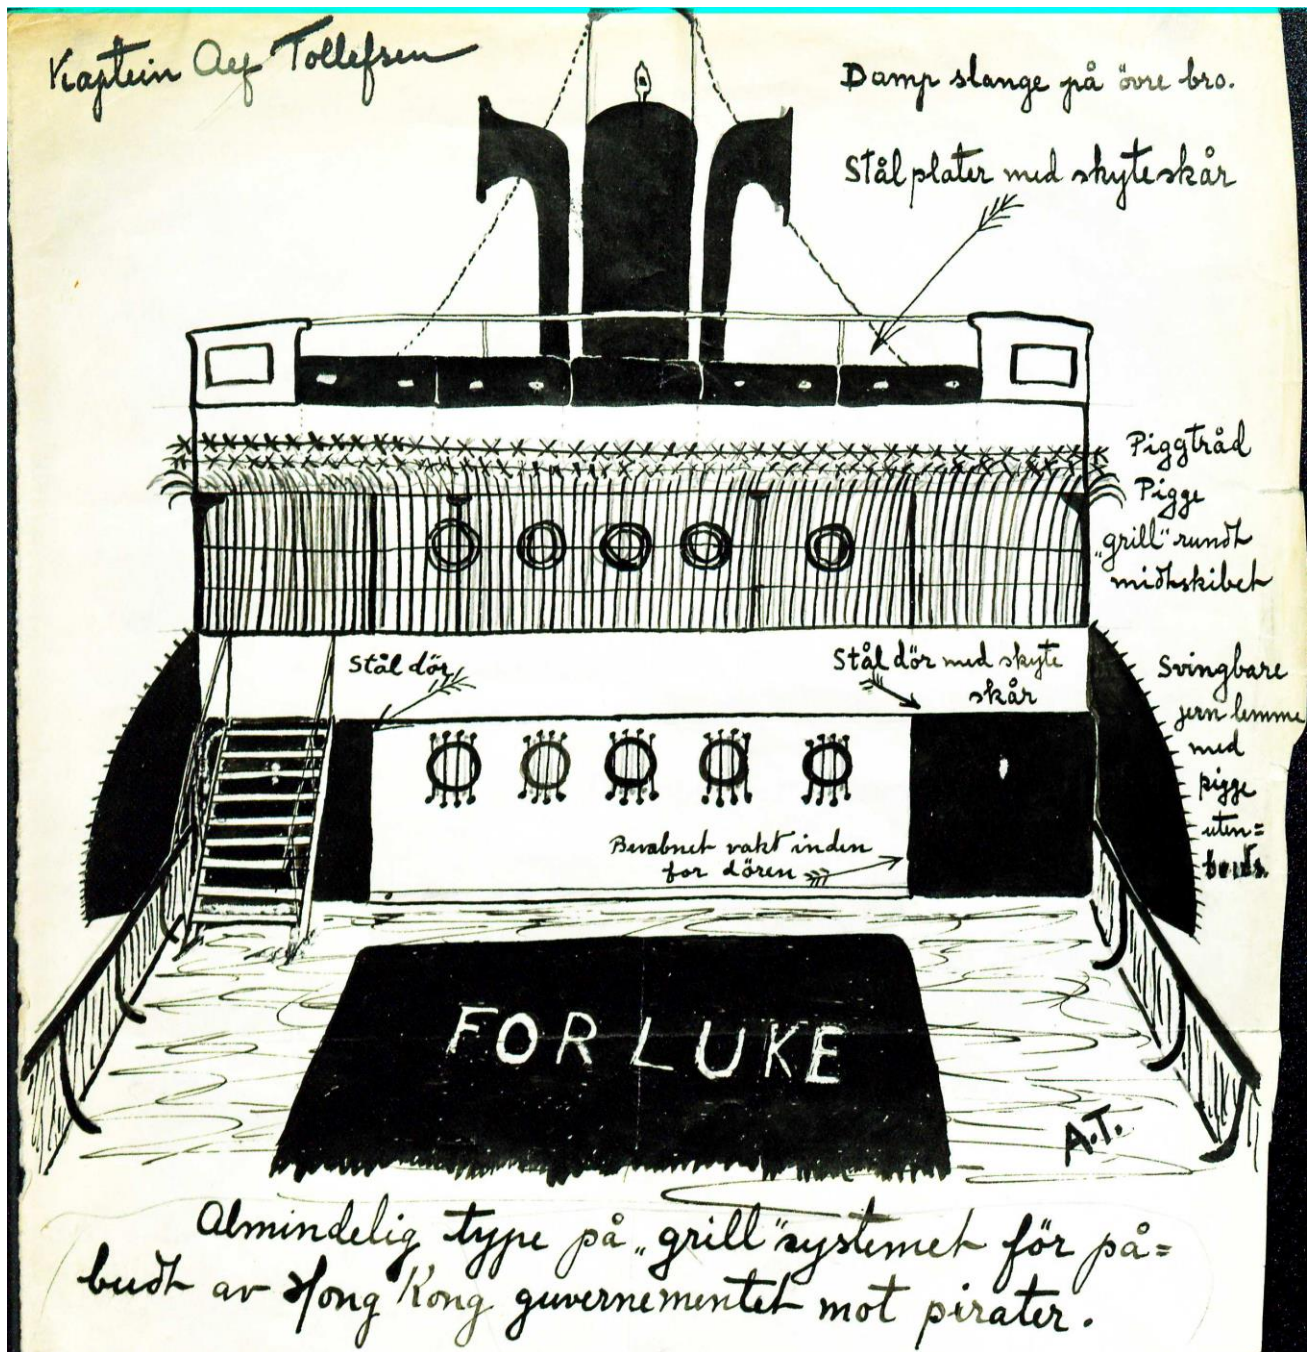 Kaptein Alf Tollefsen
Damp slange på övre bro.
Stål plater med skyteskår
Piggtråd
Pigge
„grill" rundt
midtskibet
Stål dör
Stål dör med skyte
skår
Svingbare
jern lemme
med
pigge
uten=
bords.
Bevabnet vakt inden
for dören
FOR LUKE
A.T.
Almindelig type på „grill" systemet för på=
budt av Hong Kong guvernementet mot pirater.